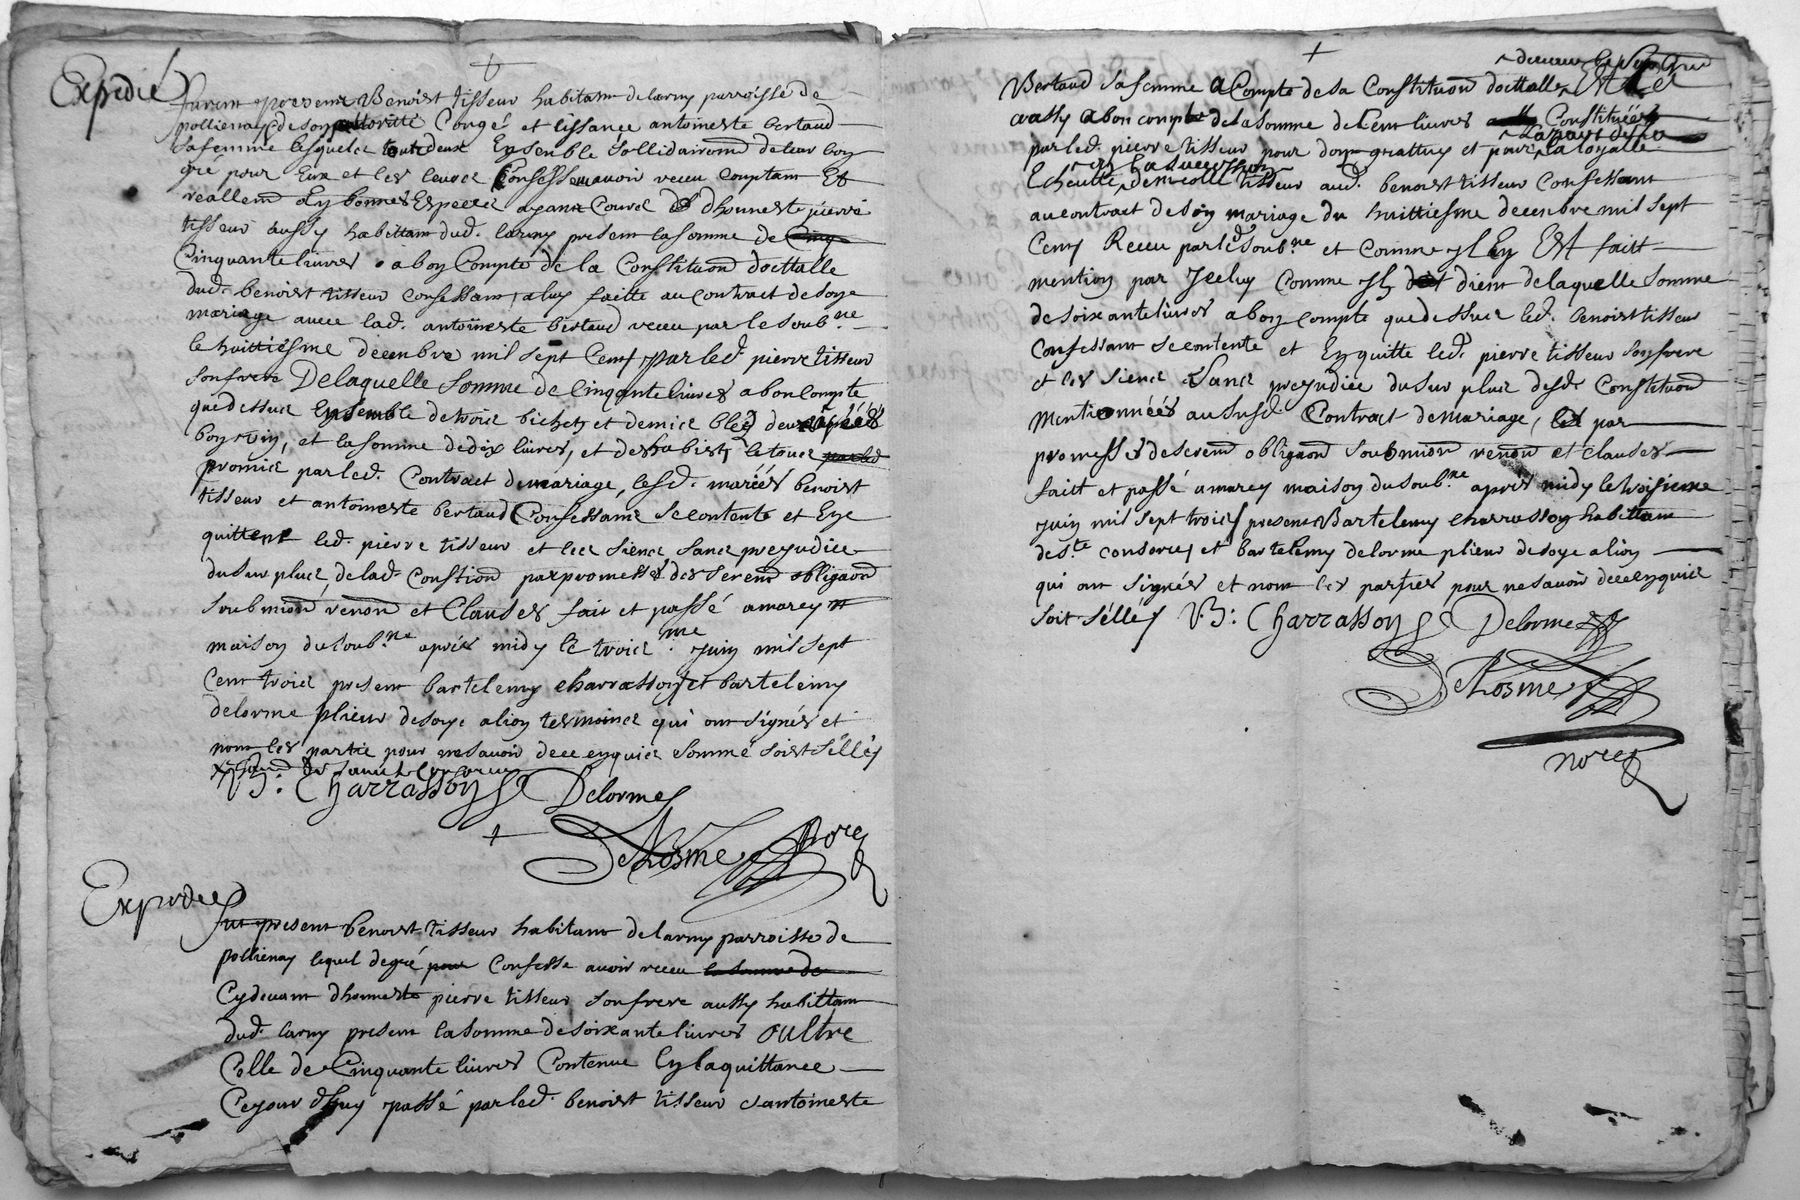 Expedié
furent present Benoist tisseur habitant de larny parroisse de
pollienay de son authoritté Congé et lissance antoineste bertaud
sa femme lesquelz tout deux Ensemble sollidairemt de leur bon
gré pour Eux et les leurs Confesse avoir receu comptant Et
reallemt En bonnes Especes ayant Cours de dhonneste pierre
tisseur aussy habittant dud. larny present la somme de Cinq
Cinquante livres a bon Compte de la Constituon doettalle
dud. benoist tisseur confessant, a luy faitte au contract de son
mariage avec lad. antoineste bertaud receu par le soubne
le huittiesme decenbre mil sept Cent par led. pierre tisseur
son frere De laquelle somme de Cinquante livres a bon Compte
que dessus Ensemble de trois bichetz et demie bled deux
bon vin, et la somme de dix livres, et des habists le tout par led
promis par led. Contract de mariage, lesd. mariés benoist
tisseur et antoineste bertaud Confessants se contente et En
quittent led. pierre tisseur et les siens sans preyudice
du sur plus, de lad. Constion par promesses des seremt obligaon
soubmion renon et Clauses fait et passé a morey
maison du soubne aprés midy le troisme juin mil sept
Cent trois present bartelemy charrasson et bartelemy
delorme plieur de soye a lion tesmoins qui ont signés et
non les partie pour ne savoir de ce enquis sommé soist séllés
B: Charrasson Delorme
Delorme Nore
Expediée
fut present benoist tisseur habitant de larny parroisse de
pollienay lequel de gré pour Confesse avoir receu la somme de
Cy devant dhonneste pierre tisseur son frere aussy habittant
dud. larny present la somme de soixante livres oultre
Celle de Cinquante livres Contenue En la quittance
Ce jour dhuy passé par led. benoist tisseur et antoineste
Bertaud sa femme a Compte de sa Constituon doettalle Et Ce
aussy a bon compte de la somme de Cent livres Constituées
par led. pierre tisseur pour don gratuy et pour la loyalle
Escheutte de nicolle tisseur aud. benoist tisseur Confessant
au contract de son mariage du huittiesme decenbre mil sept
Cent Receu par led soubne et comme yl En Est faitt
mention par Jceluy Comme Jlz dient de laquelle somme
de soixante livres a bon compte que dessus led. benoist tisseur
Confessant se contente et En quitte led. pierre tisseur son frere
et les siens sans preyudice du sur plus desd. Constituon
Mentionnées au susd. Contract de mariage, par
promesses de seremt obligaon soubmion renon et clauses
faitt et passé a morey maison du soubne aprés midy le troisieme
juin mil sept trois present Bartelemy charrasson habittant
de ste consorce et bartelemy delorme plieur de soye a lion
qui ont signés et non les parties pour ne savoir de ce enquis
soit séllés B: Charrasson Delorme
Delorme
nore